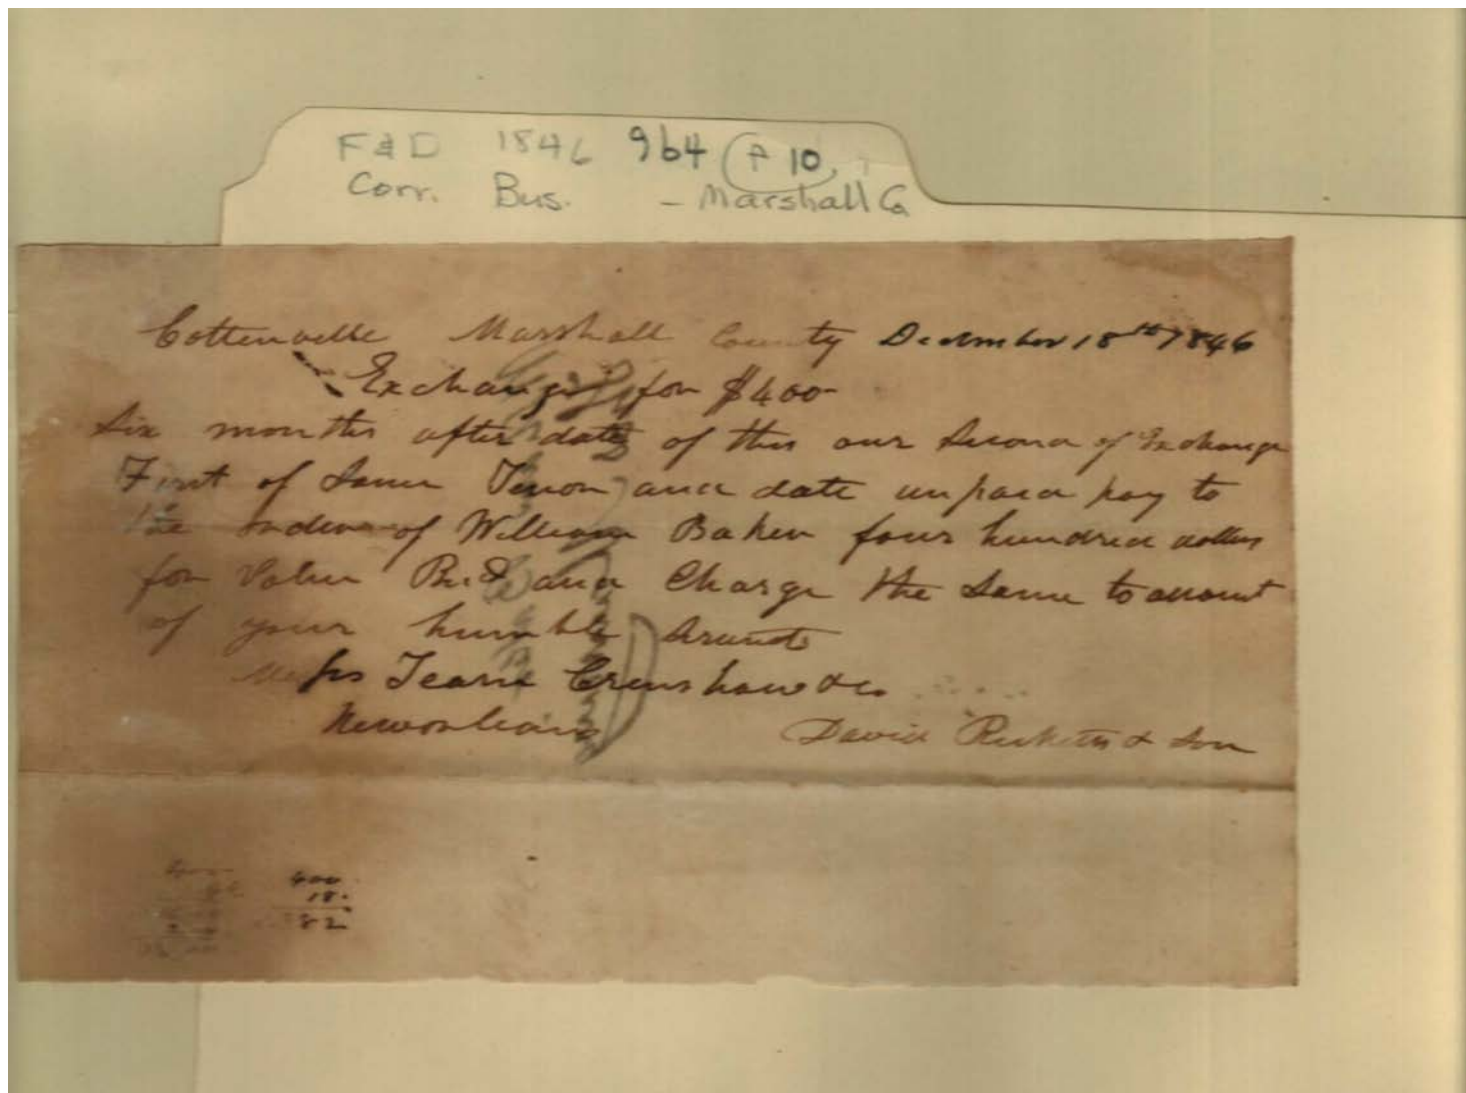 F & D 1846 964 P 10
Corr. Bus. - Marshall Co
Cottenville Marshall County December 18th 1846
Exchange for $400
Six months after date of this our Second of Exchange
First of Same Tenor and date unpaid pay to
the order of William Baker four hundred dollars
for Value Recd and Charge the Same to account
of your humble Servants
Messrs Crenshaw & Co
Neworleans David Ricketts & Son
400
18.
382